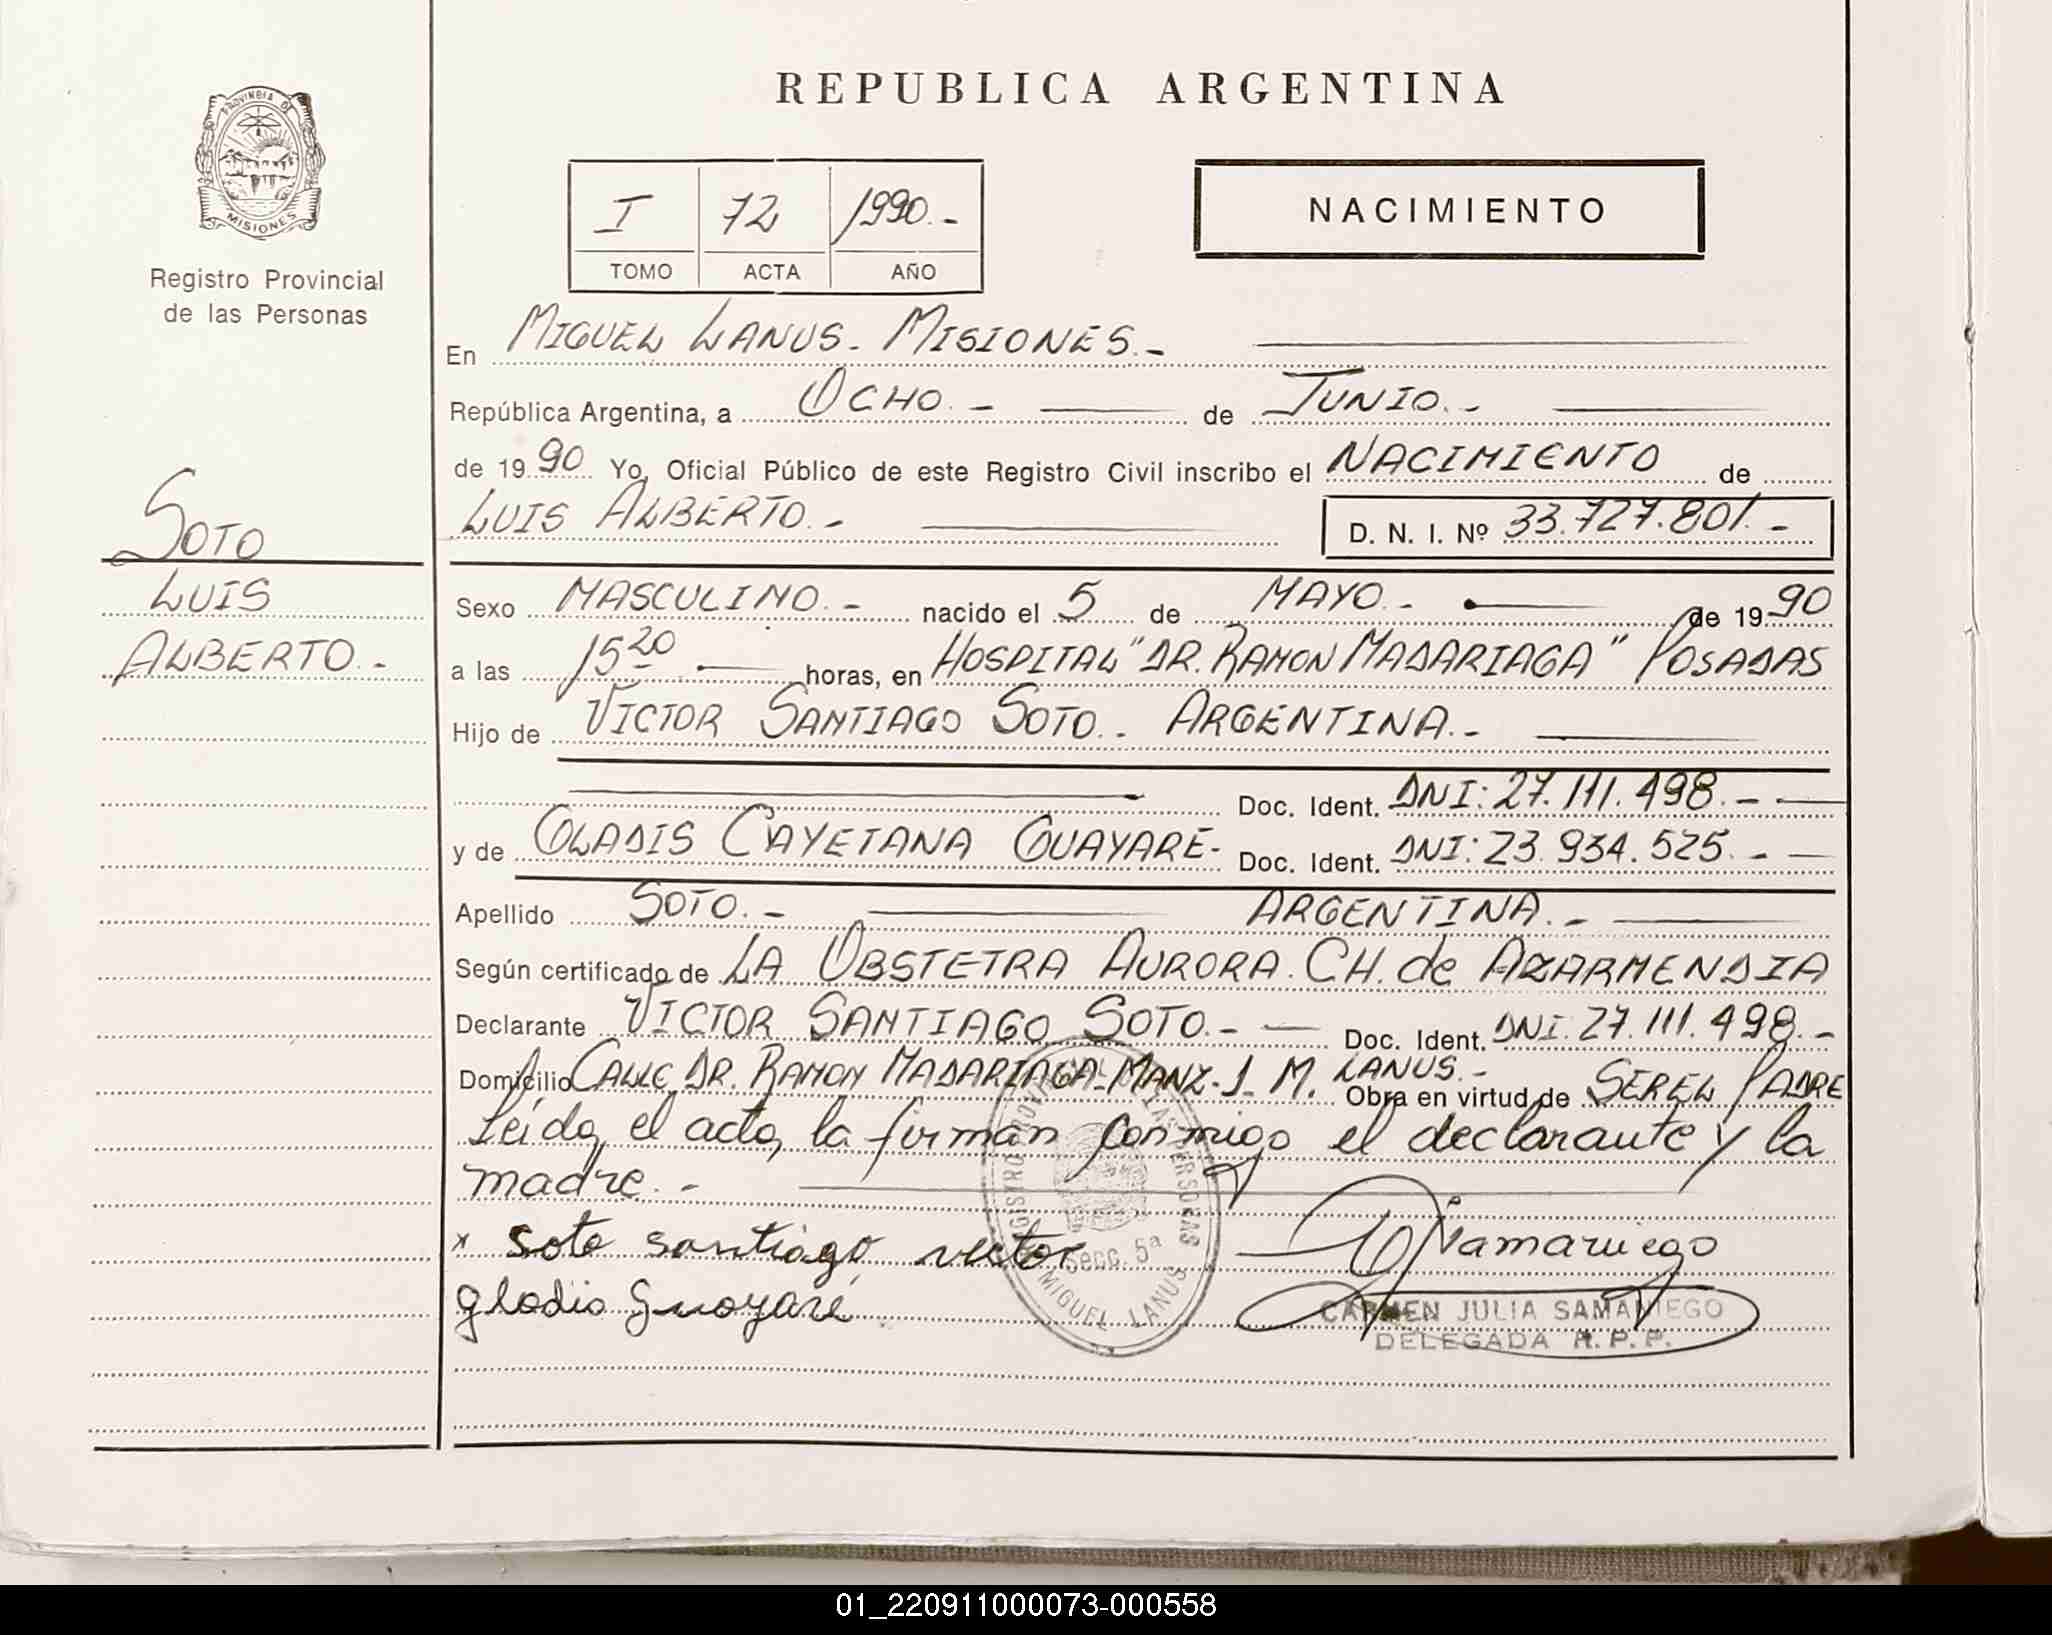 REPUBLICA ARGENTINA
PROVINCIA DE
MISIONES
Registro Provincial
de las Personas
I 72 1990.-
TOMO ACTA AÑO
NACIMIENTO
En MIGUEL LANUS. MISIONES.-
República Argentina, a OCHO.- de JUNIO.-
de 1990 Yo, Oficial Público de este Registro Civil inscribo el NACIMIENTO de
LUIS ALBERTO.- D. N. I. Nº 33.727.801.-
SOTO
LUIS
ALBERTO.-
Sexo MASCULINO.- nacido el 5 de MAYO.- de 1990
a las 15 20 horas, en HOSPITAL "DR. RAMON MADARIAGA" POSADAS
Hijo de VICTOR SANTIAGO SOTO.- ARGENTINA.-
Doc. Ident. DNI: 27.111.498.-
y de GLADIS CAYETANA GUAYARE- Doc. Ident. DNI: 23.934.525.-
Apellido SOTO.- ARGENTINA.-
Según certificado de LA OBSTETRA AURORA. CH. de AZARMENDIA
Declarante VICTOR SANTIAGO SOTO.- Doc. Ident. DNI. 27.111.498.-
Domicilio CALLE DR. RAMON MADARIAGA-MANZ-J M. LANUS.- Obra en virtud de SER EL PADRE
Leída el acta, la firman conmigo el declarante y la
madre.-
x soto santiago victor
Samaniego
gladis Guayaré
REGISTRO PROVINCIAL DE LAS PERSONAS
Secc. 5ª
MIGUEL LANUS
CARMEN JULIA SAMANIEGO
DELEGADA R.P.P.
01_220911000073-000558